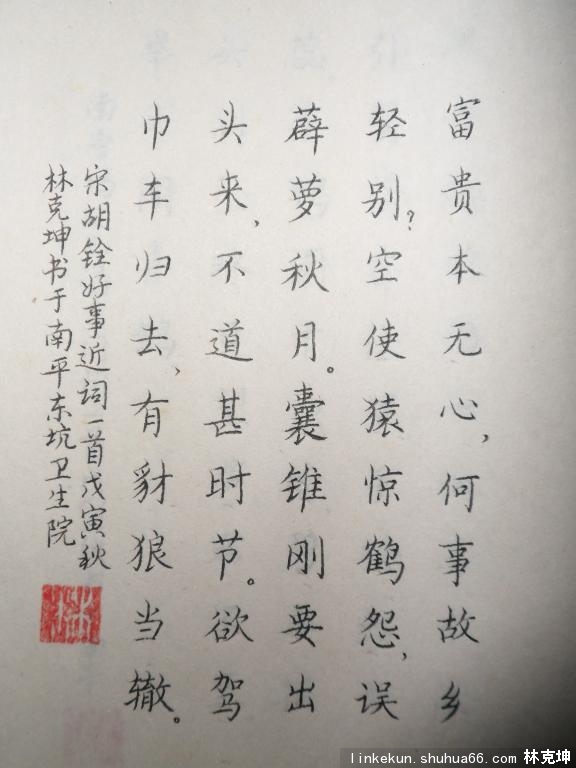 富贵本无心，何事故乡
轻别？空使猿惊鹤怨，误
薜萝秋月。囊锥刚要出
头来，不道甚时节。欲驾
巾车归去，有豺狼当辙。
宋胡铨好事近词一首戊寅秋
林克坤书于南平东坑卫生院
linkekun.shuhua66.com 林克坤